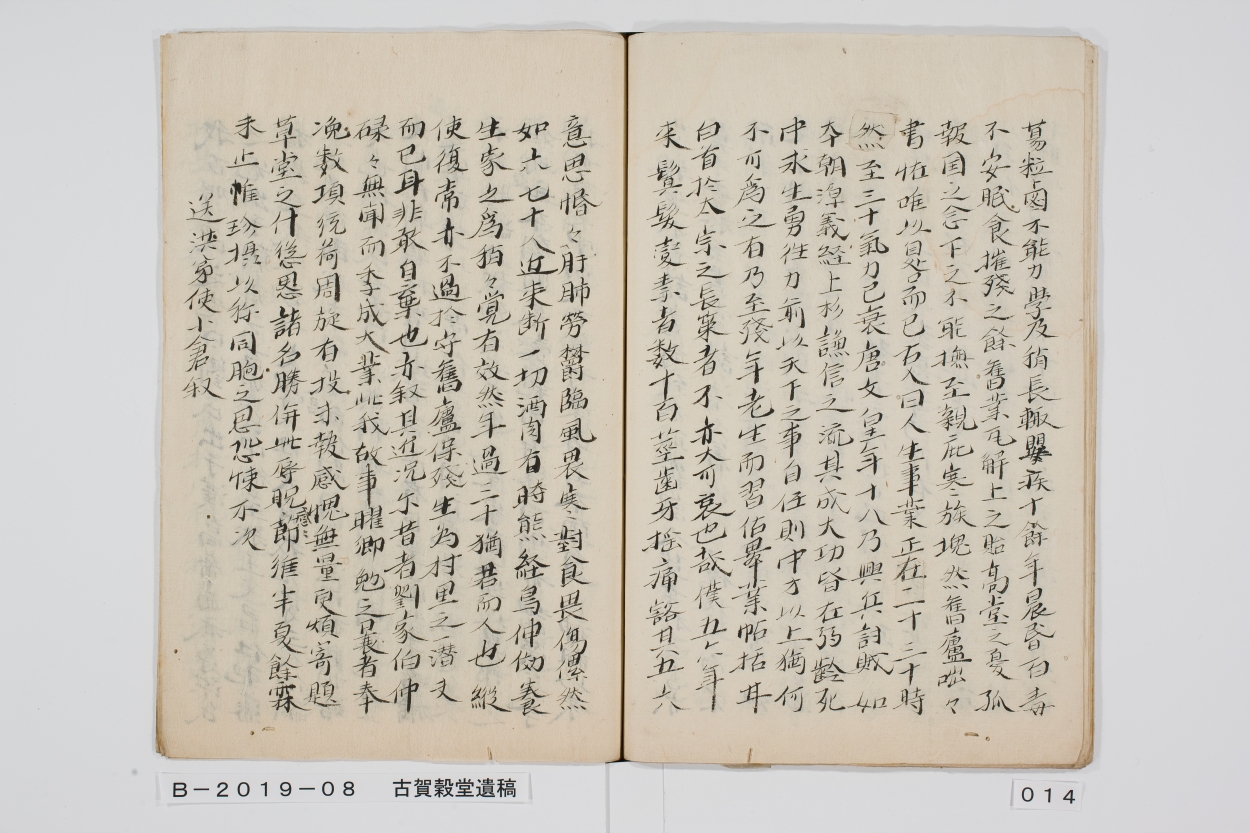 蒭粒鹵不能力學及稍長輙嬰疾十餘年晨昏百毒
不安眠食摧殘之餘舊業瓦解上之貽高堂之憂孤
報国之念下之不能撫至親庇寒族塊然舊廬咄々
書恠唯以自咎而已古人曰人生事業正在二十三十時
然至三十氣力已衰唐文皇年十八乃興兵討賊如
本朝淳義経上杉謙信之流其成大功皆在弱齡死
中求生勇往力前以天下之事自任則中才以上猶何
不可為之有乃至殘年老生而習佔畢業帖括耳
白首於太宗之長策者不亦大可哀也哉僕五六年
来鬂髮変素者数十百莖齒牙揺痛豁其五六
意思惛々肝肺勞欝臨風畏寒對食畏傷儽然
如六七十人近来断一切酒肉有時熊経鳥伸倣養
生家之為稍々覚有效然年過三十猶若而人也縦
使復常亦不過於守舊廬保殘生為村里之一潜夫
而已耳非敢自棄也亦叙其近况尓昔者劉家伯仲
碌々無聞而季成大業此我故事曜卿勉之曩者奉
浼數項統荷周旋有投未報感愧無量更煩寄題
草堂之什慫恩諸名勝併此辱貺慰節維半夏餘霖
未止惟珍攝以衛同胞之思恐悚不次
送洪家使小倉叙
B-2019-08 古賀穀堂遺稿
014